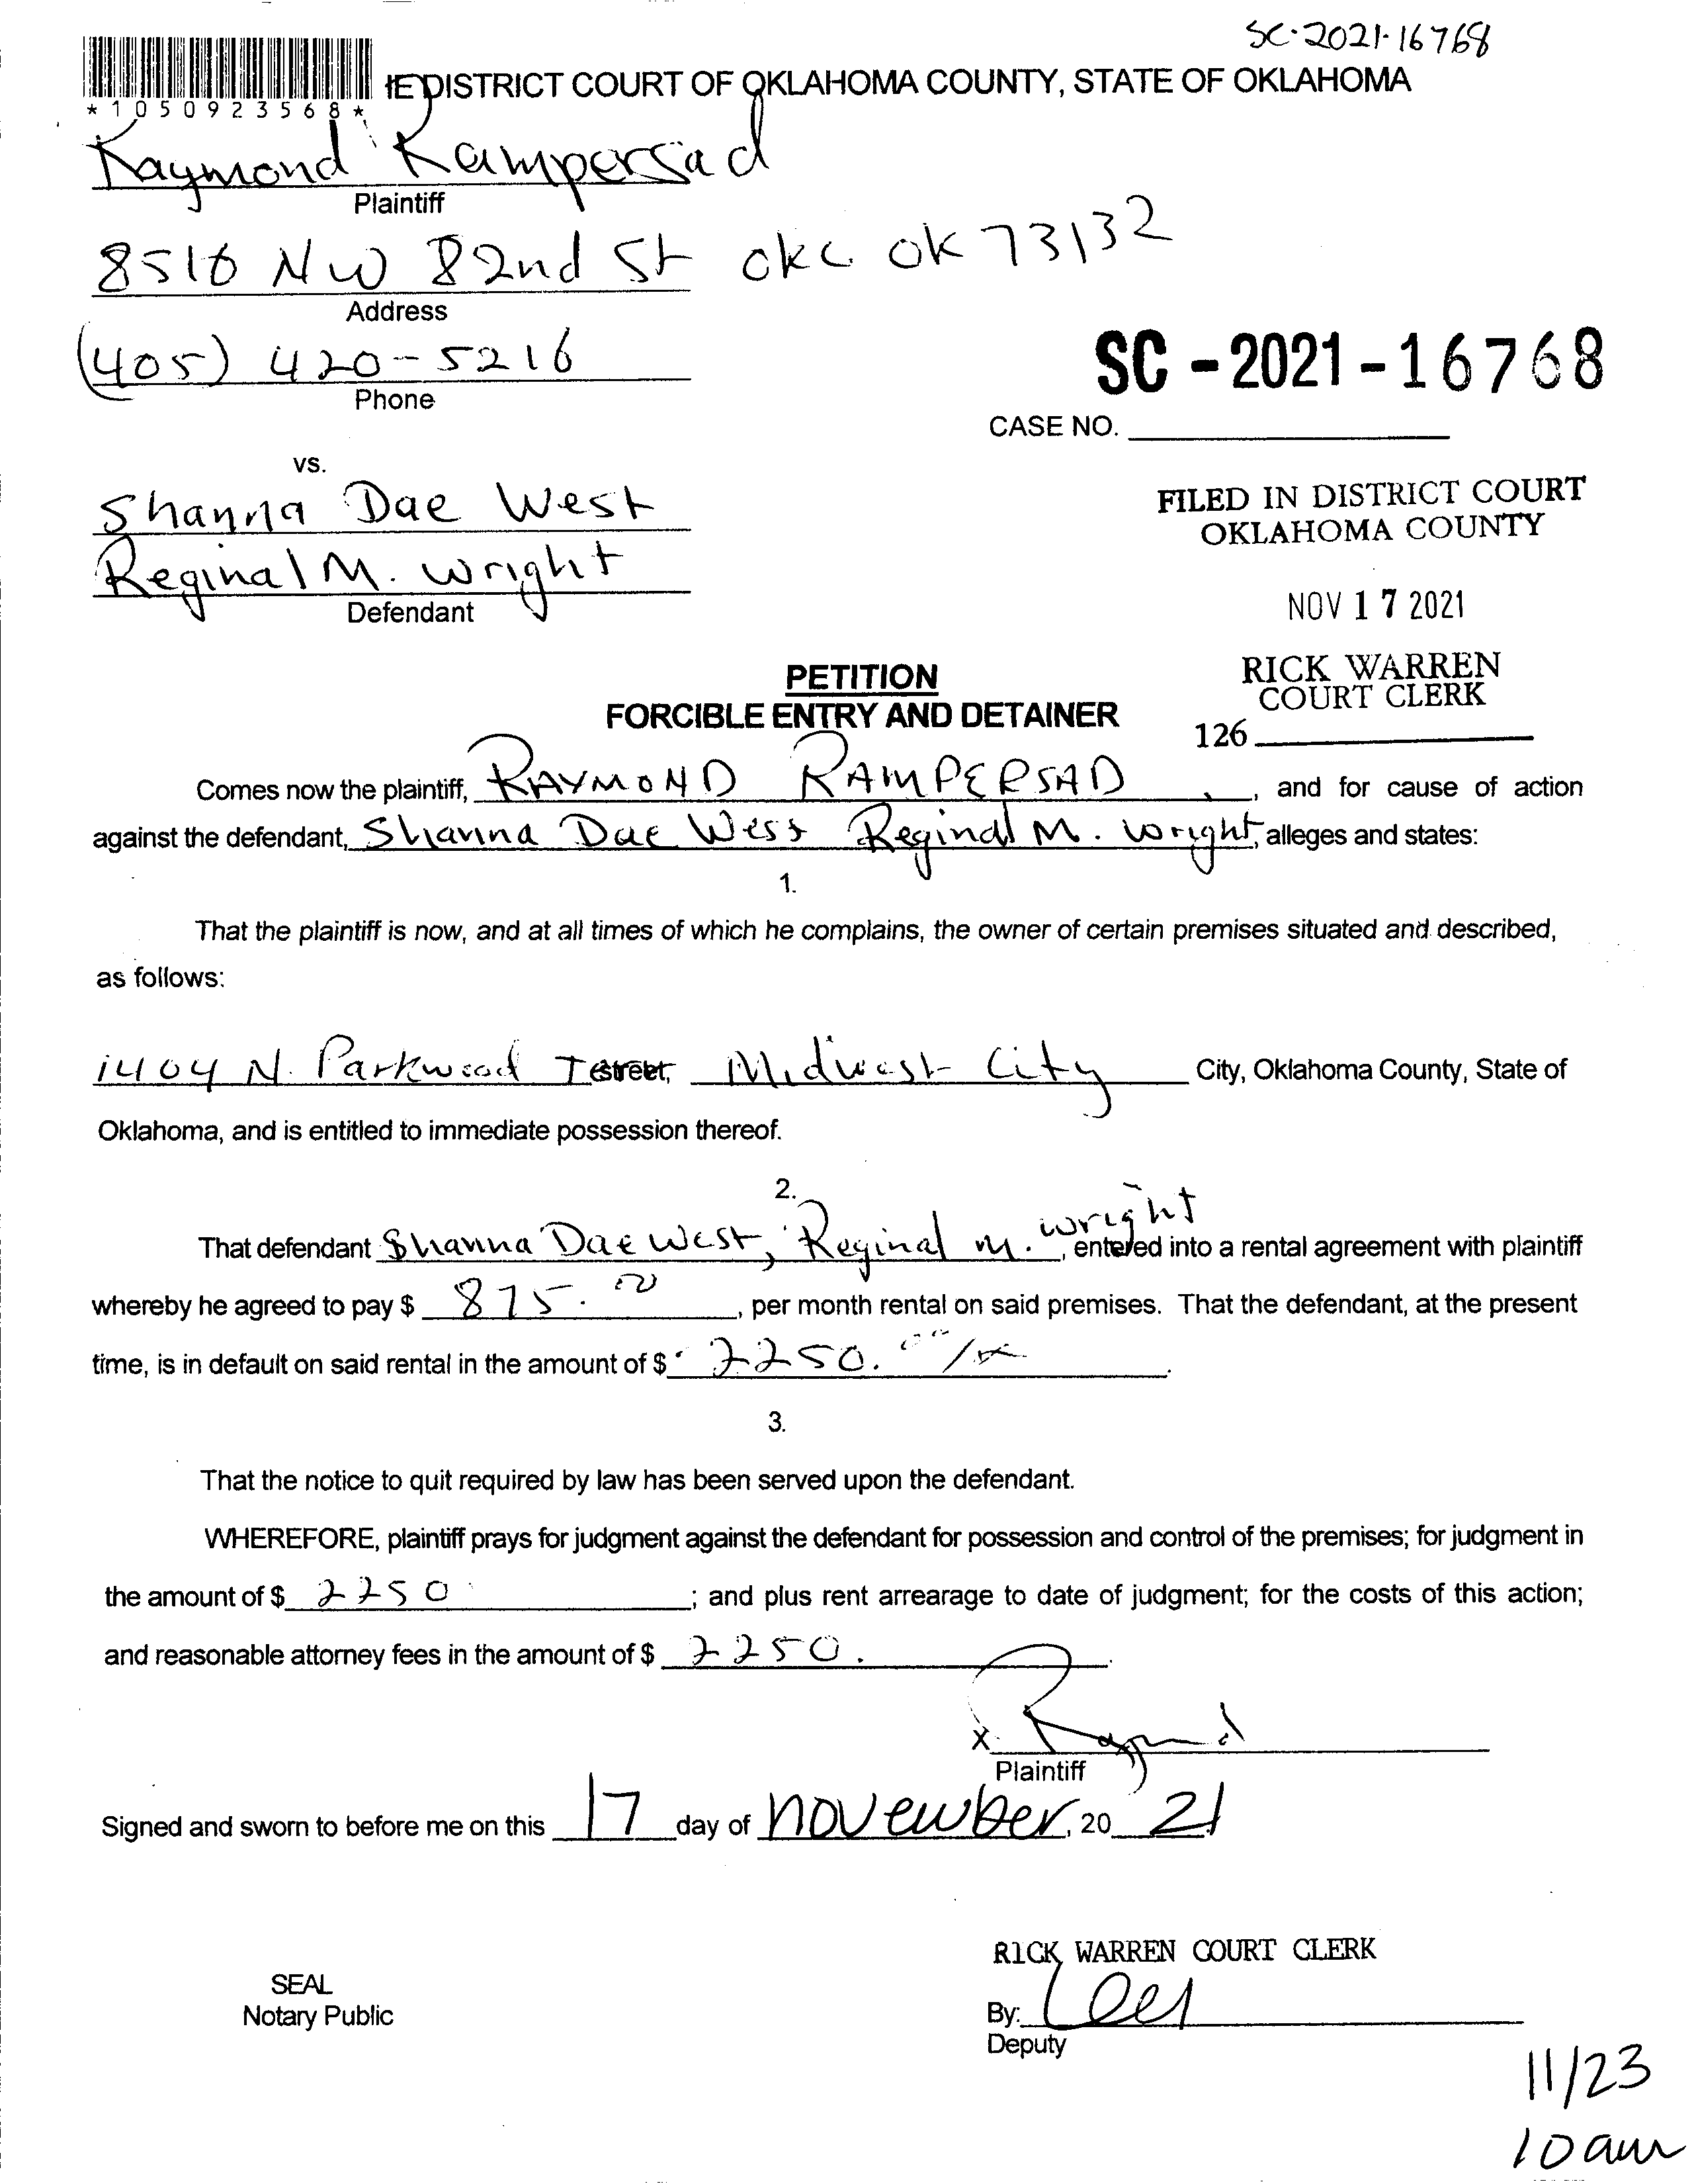 SC-2021-16768
*1050923568*
IE DISTRICT COURT OF OKLAHOMA COUNTY, STATE OF OKLAHOMA
Raymond Rampersad
Plaintiff
8516 NW 82nd St okc ok 73132
Address
(405) 420-5216
Phone
SC-2021-16768
CASE NO.
vs.
Shanna Dae West
Reginal M. Wright
Defendant
FILED IN DISTRICT COURT
OKLAHOMA COUNTY
NOV 17 2021
RICK WARREN
COURT CLERK
126
PETITION
FORCIBLE ENTRY AND DETAINER
Comes now the plaintiff, RAYMOND RAMPERSAD, and for cause of action
against the defendant, Shanna Dae West Reginal M. Wright, alleges and states:
1.
That the plaintiff is now, and at all times of which he complains, the owner of certain premises situated and described,
as follows:
1404 N. Parkwood Street, Midwest City City, Oklahoma County, State of
Oklahoma, and is entitled to immediate possession thereof.
2.
That defendant Shanna Dae West, Reginal M. Wright, entered into a rental agreement with plaintiff
whereby he agreed to pay $ 875.00, per month rental on said premises. That the defendant, at the present
time, is in default on said rental in the amount of $ 2250.00/xx.
3.
That the notice to quit required by law has been served upon the defendant.
WHEREFORE, plaintiff prays for judgment against the defendant for possession and control of the premises; for judgment in
the amount of $ 2250; and plus rent arrearage to date of judgment; for the costs of this action;
and reasonable attorney fees in the amount of $ 2250.
X
Plaintiff
Signed and sworn to before me on this 17 day of november, 20 21
RICK WARREN COURT CLERK
SEAL
Notary Public
By:
Deputy
11/23
10am